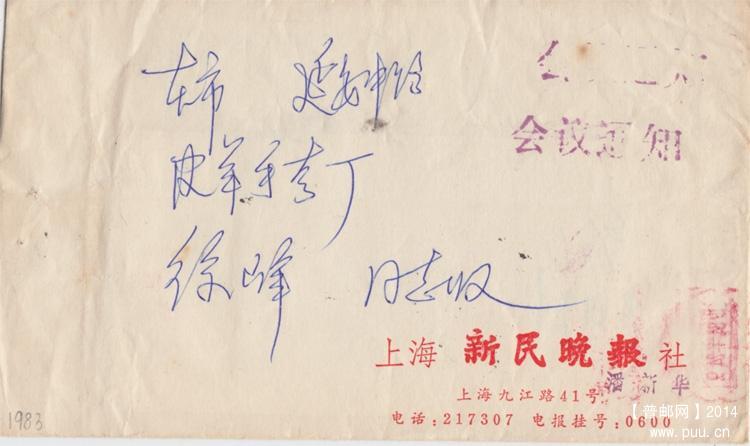 本市 延安中路
会议通知
会议通知
徐峰 同志收
上海 新民晚报 社
潘新华
上海九江路41号
电话:217307 电报挂号:0600
1983
【普邮网】2014
www.puu.cn